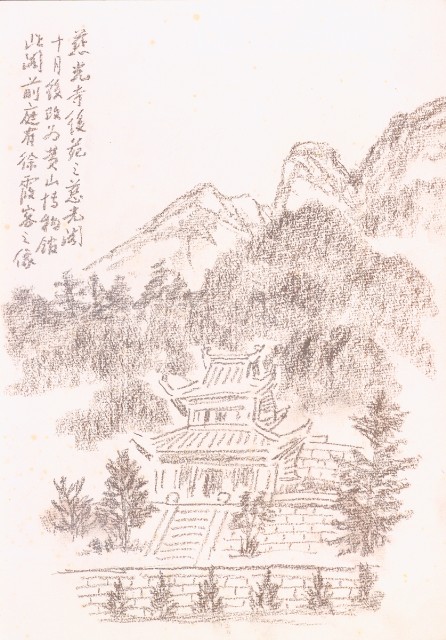 慈光寺後苑之慈光閣
十月後改为黄山博物館
此閣前庭有徐霞客之像